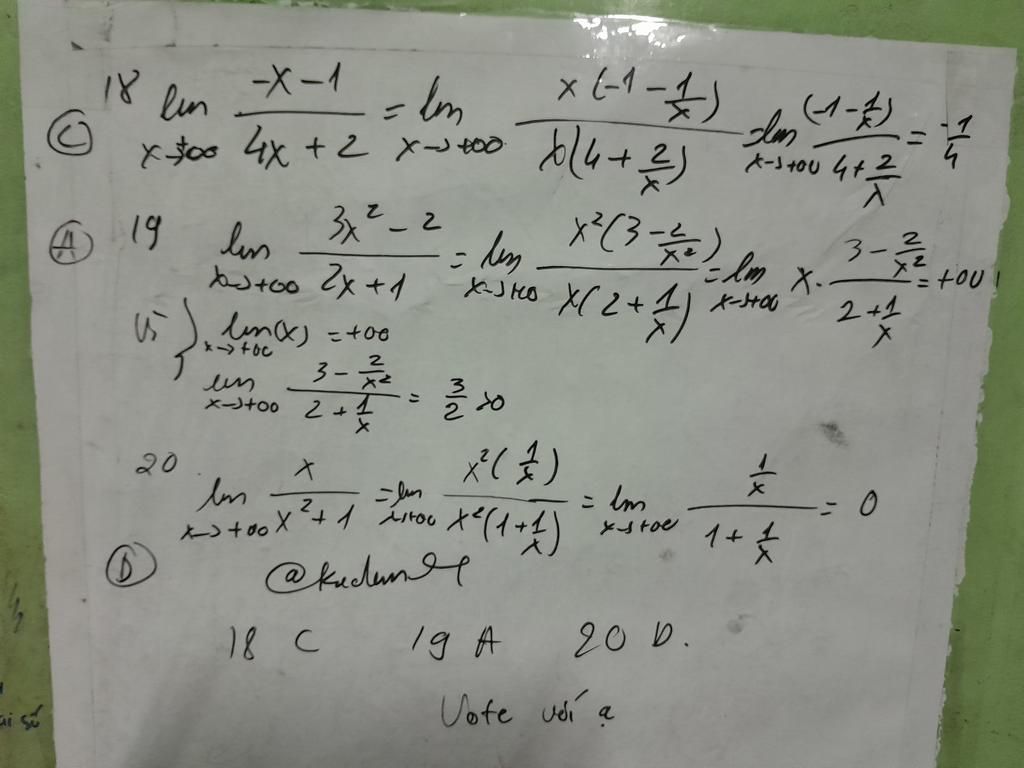 18 lim x→+∞ (-x-1)/(4x+2) = lim x→+∞ x(-1-1/x)/x(4+2/x) = lim x→+∞ (-1-1/x)/(4+2/x) = -1/4
C
A 19 lim x→+∞ (3x²-2)/(2x+1) = lim x→+∞ x²(3-2/x²)/x(2+1/x) = lim x→+∞ x. (3-2/x²)/(2+1/x) = +∞
Vì } lim x→+∞ (x) = +∞
lim x→+∞ (3-2/x²)/(2+1/x) = 3/2 >0
20. lim x→+∞ x/(x²+1) = lim x→+∞ x²(1/x)/x²(1+1/x) = lim x→+∞ (1/x)/(1+1/x) = 0
D
18 C 19 A 20 D.
Vote với ạ
ai số